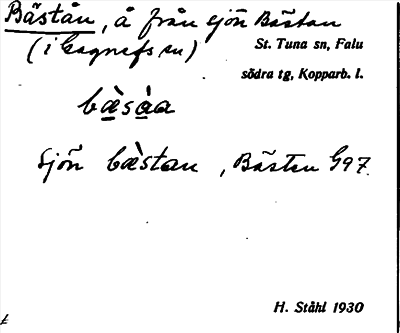 Bästån, å från sjön Bästan
(i Gagnefs sn)
St. Tuna sn, Falu
södra tg, Kopparb. l.
bæ̀sàa
Sjön bæ̀stan, Bästen G97.
H. Ståhl 1930